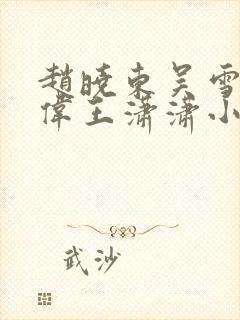 趙曉東吴雪
偉王瀟瀟小
武沙